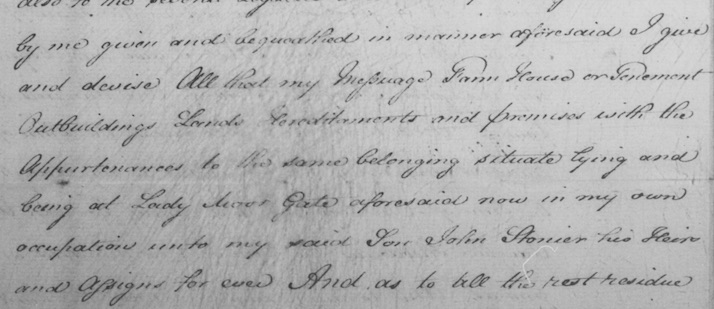 also to the several
by me given and bequeathed in manner aforesaid I give
and devise All that my Messuage Farm House or Tenement
Outbuildings Lands Hereditaments and premises with the
Appurtenances to the same belonging situate lying and
being at Lady Moor Gate aforesaid now in my own
occupation unto my said Son John Stonier his Heirs
and Assigns for ever And as to all the rest residue